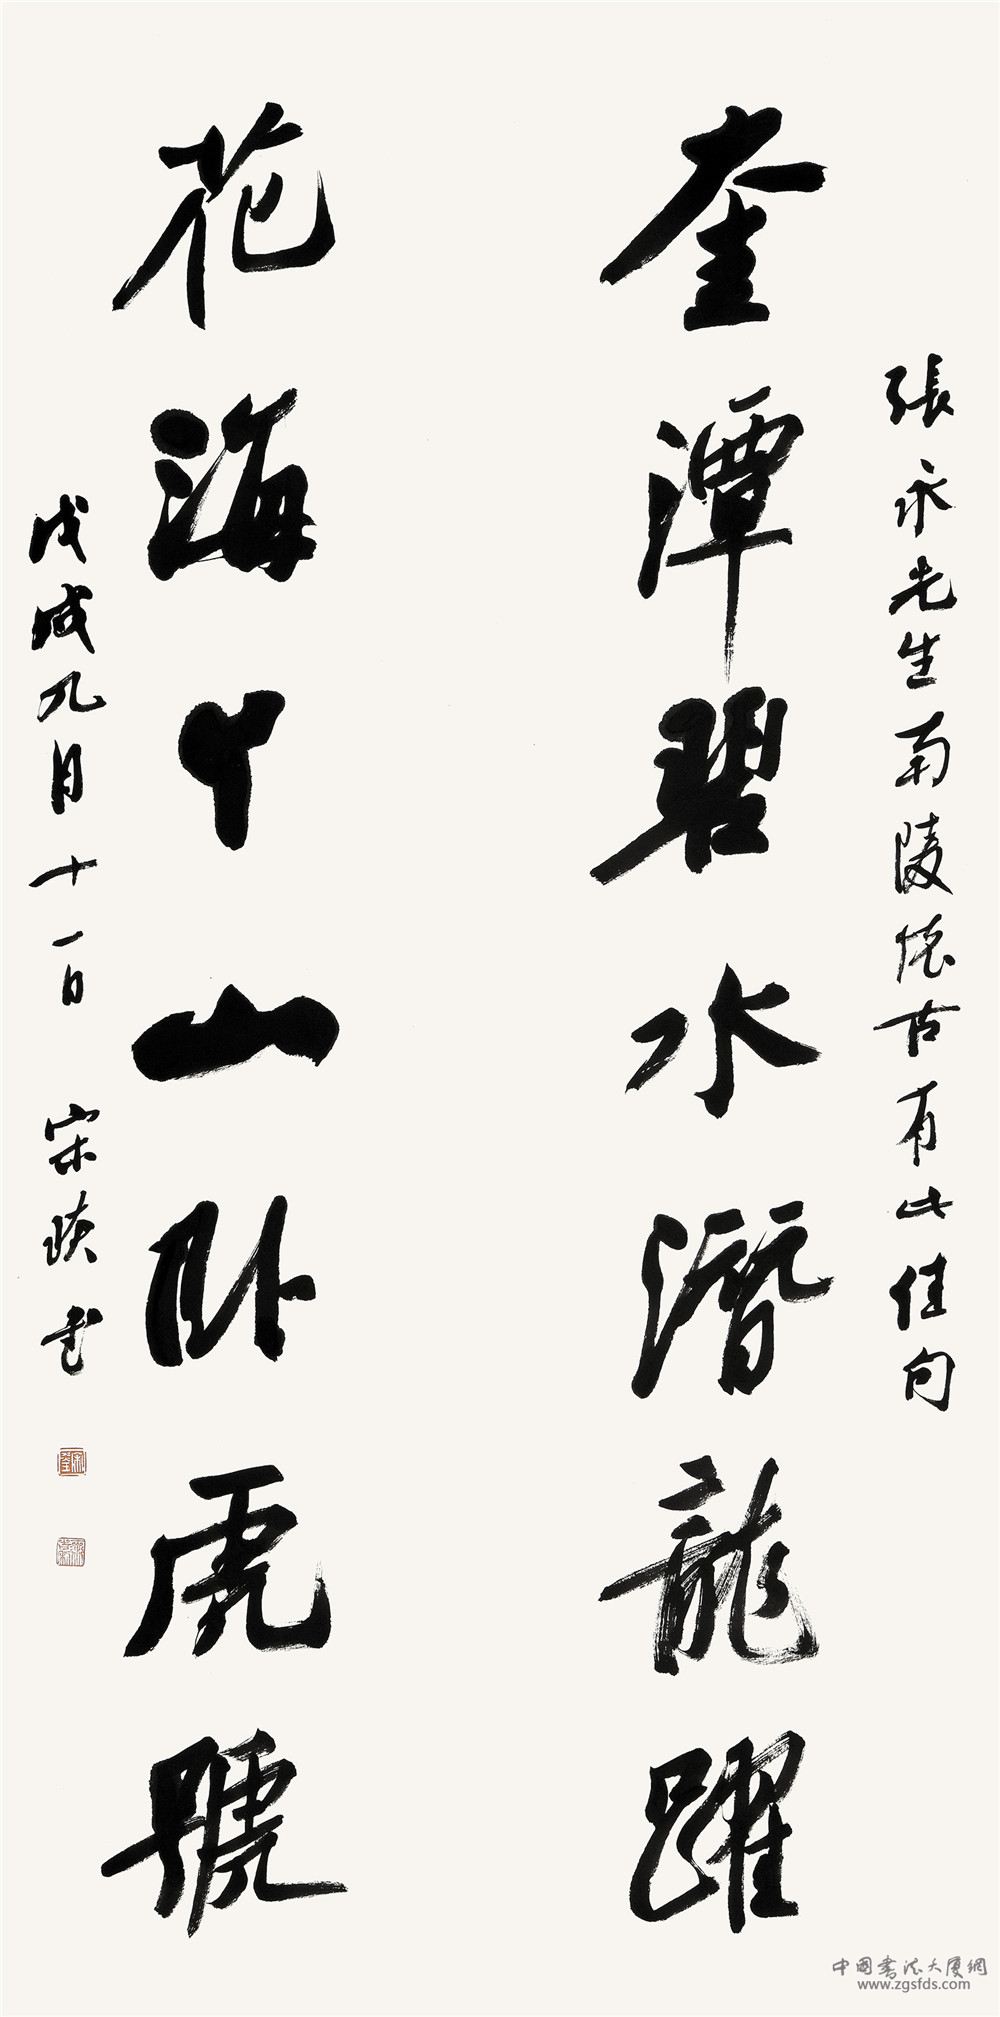 張永先生南陵懷古有此佳句
奎潭碧水潛龍躍
花海丫山卧虎號
戊戌九月十一日 宋 書
中國書法大厦網
www.zgsfds.com